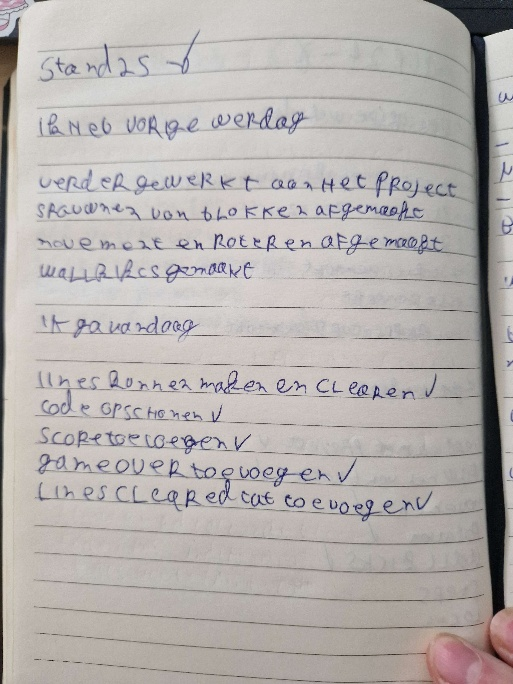 Stand 25 ✓
Ik heb vorige werdag
verder gewerkt aan het project
spawnen van blokken afgemaakt
movement en roteren afgemaakt
wallkicks gemaakt
ik ga vandaag
lines kunnen maken en clearen ✓
code opschonen ✓
score toevoegen ✓
game over toevoegen ✓
lines cleared tat toevoegen ✓